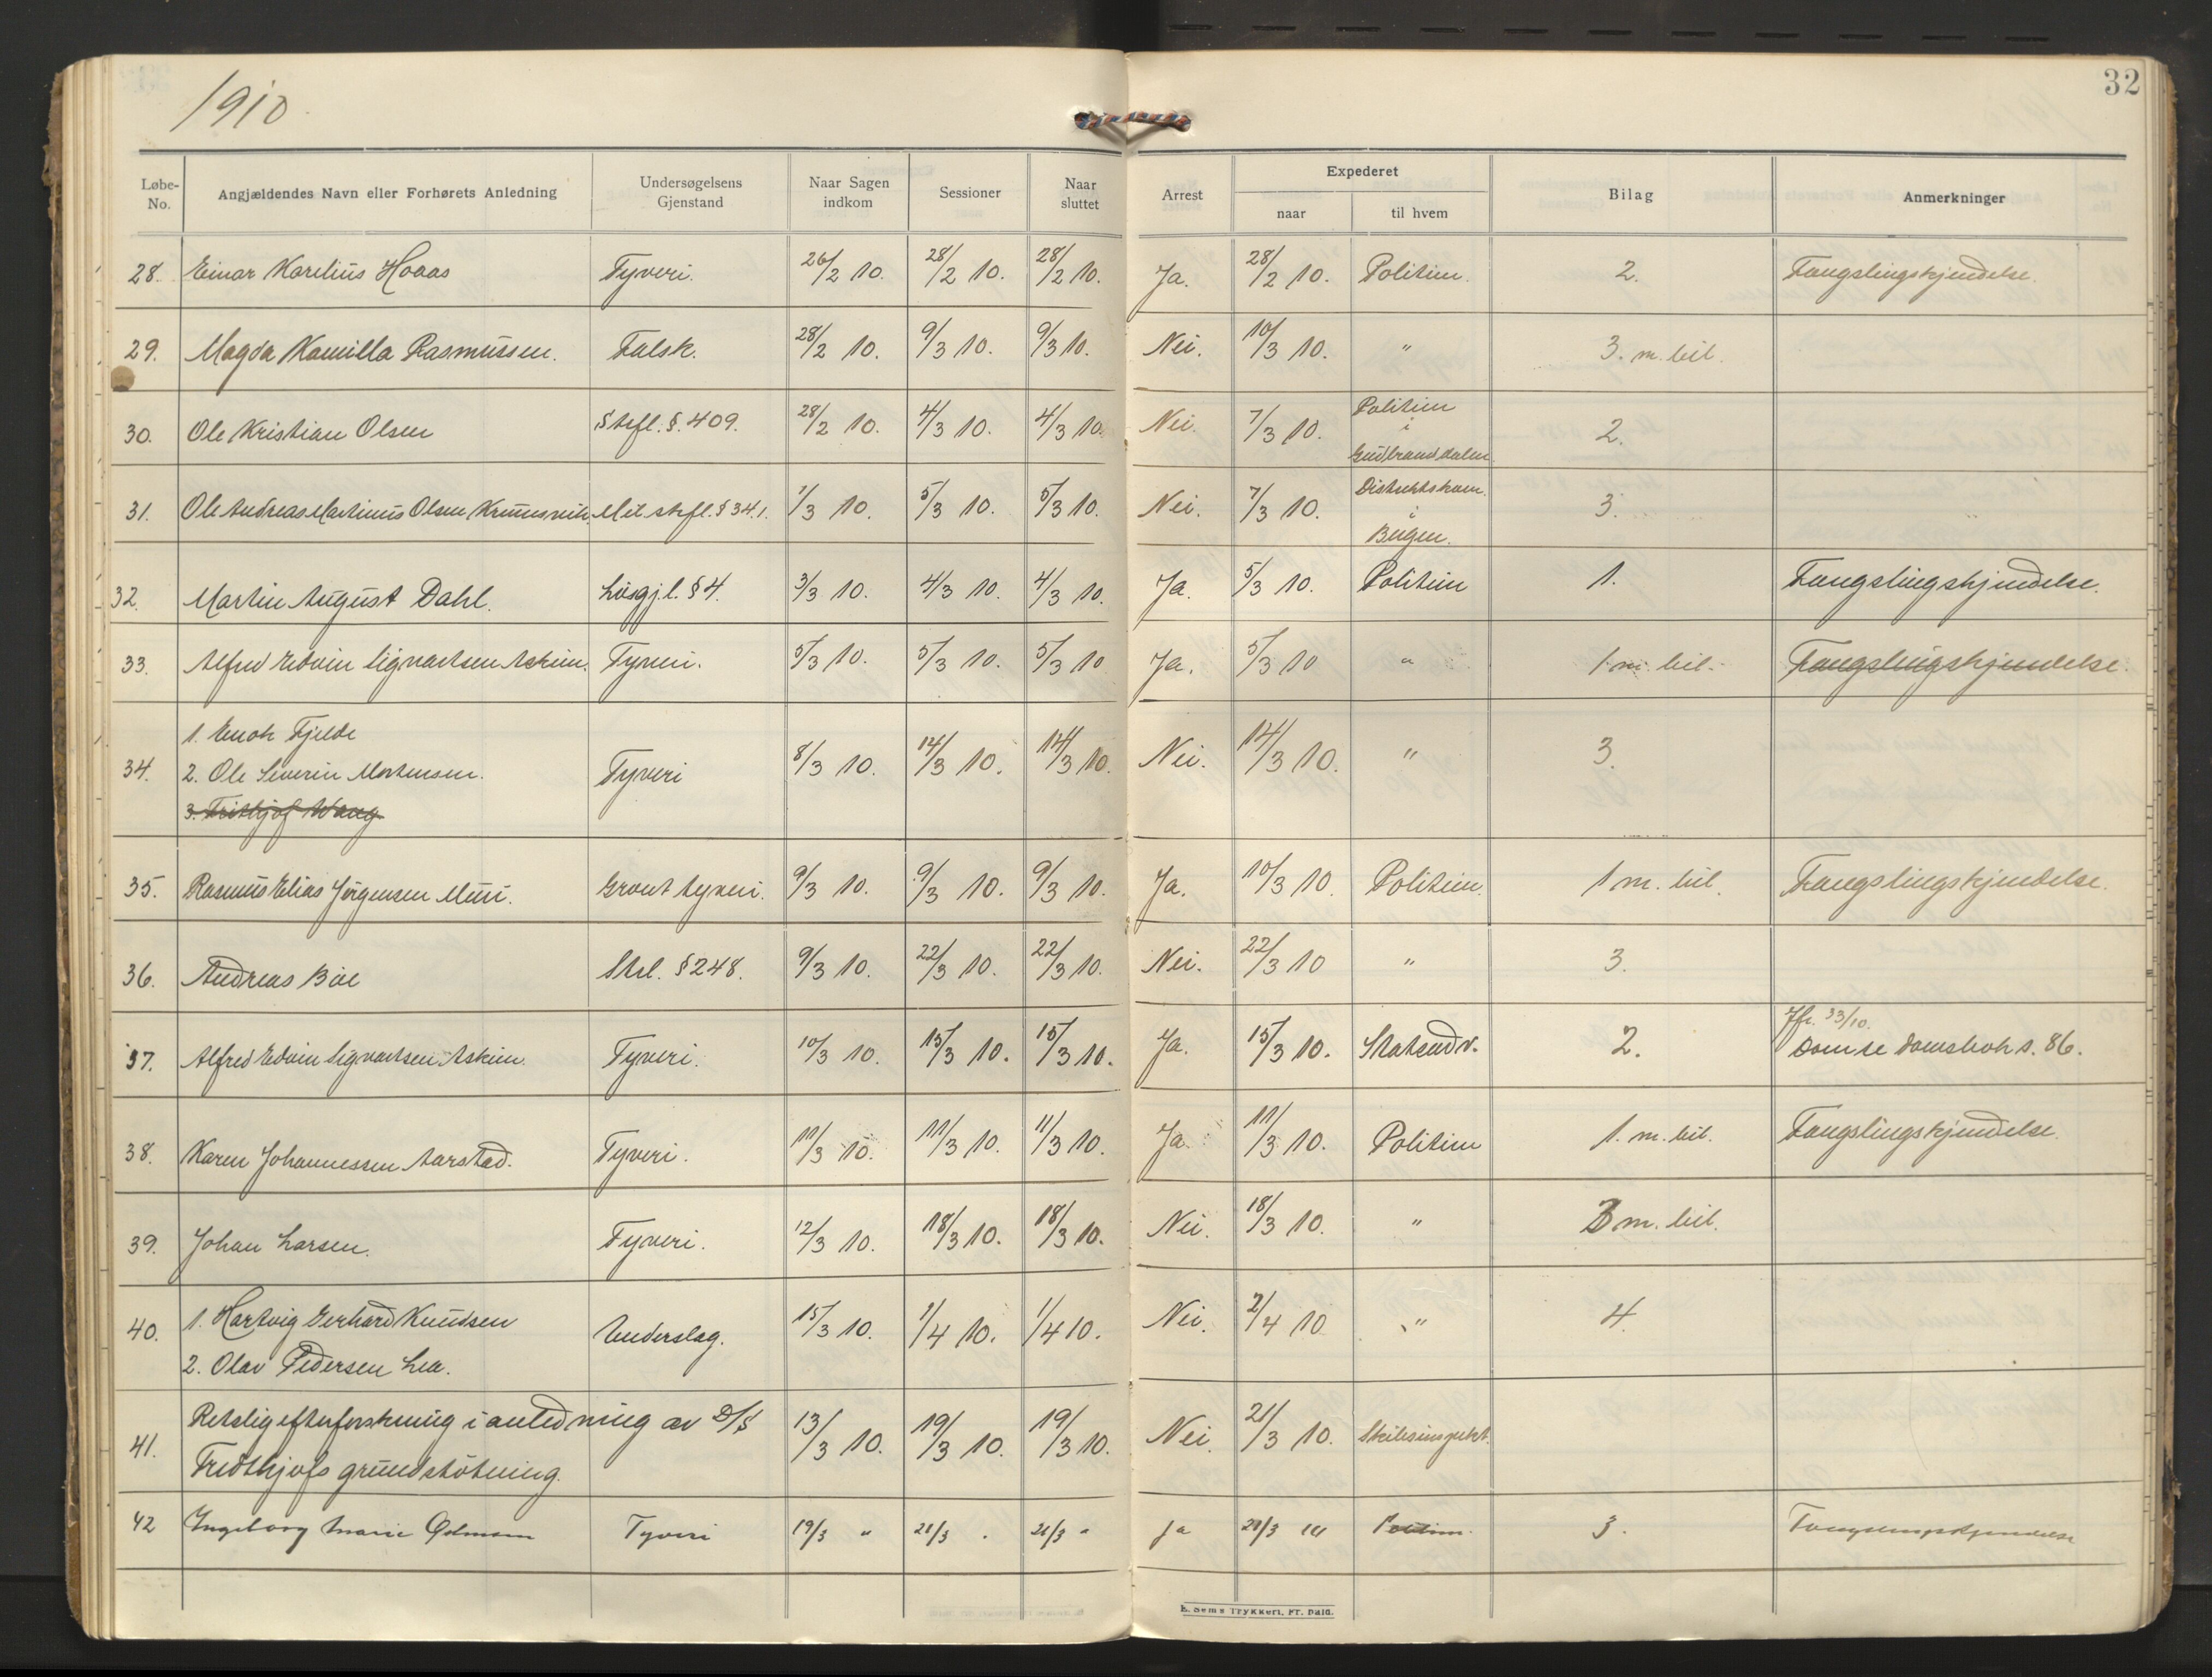 1910
32
Løbe-No. Angjældendes Navn eller Forhørets Anledning Undersøgelsens Gjenstand Naar Sagen indkom Sessioner Naar sluttet Arrest Expederet naar til hvem Bilag Anmerkninger
28. Einar Karelius Hoaas Tyveri. 26/2 10. 28/2 10. 28/2 10. Ja. 28/2 10. Politim. 2. Fængslingskjendelse.
29. Magda Kamilla Rasmussen. Falsk. 28/2 10. 9/3 10. 9/3 10. Nei. 10/3 10. " 3. m. bil.
30. Ole Kristian Olsen Strfl. §. 409. 28/2 10. 4/3 10. 4/3 10. Nei. 7/3 10. Politim i Gudbrandsdalen 2.
31. Ole Andreas Martinus Olsen Mil. strfl. § 34.1. 1/3 10. 5/3 10. 5/3 10. Nei. 7/3 10. i 3.
32. Martin August Dahl. Løsgj.l. § 4. 3/3 10. 4/3 10. 4/3 10. Ja. 5/3 10. Politim 1. Fængslingskjendelse.
33. Alfred Edvin Sigvartsen Askim. Tyveri. 5/3 10. 5/3 10. 5/3 10 Ja. 5/3 10 " 1 m. bil. Fængslingskjendelse.
34. 1. Enok Fjelde
2. Ole Severin Mortensen.
3. Frithjof Wang
Tyveri 8/3 10. 14/3 10. 14/3 10. Nei. 14/3 10. " 3.
35. Rasmus Elias Jørgensen Muri. Grovt tyveri. 9/3 10. 9/3 10. 9/3 10. Ja. 10/3 10. Politim. 1 m. bil. Fængslingskjendelse.
36. Andreas Bøe Strl. § 248. 9/3 10. 22/3 10. 22/3 10. Nei. 22/3 10 " 3.
37. Alfred Edvin Sigvartsen Askim. Tyveri. 10/3 10. 15/3 10. 15/3 10. Ja. 15/3 10. Statsadv. 2. Jfr. 33/10.
Dom se domsbok s. 86.
38. Karen Johannessen Aarstad. Tyveri. 11/3 10. 11/3 10. 11/3 10. Ja. 11/3 10. Politim 1. m. bil. Fængslingskjendelse.
39. Johan Larsen. Tyveri. 12/3 10. 18/3 10. 18/3 10. Nei. 18/3 10. " m. bil.
40. 1. Hartvig Gerhard Knudsen
2. Olav Pedersen Lea.
Underslag. 15/3 10. 1/4 10. 1/4 10. Nei. 2/4 10 " 4.
41. Retslig efterforskning i anledning av D/S
Fridthjofs grundstøtning.
13/3 10. 19/3 10. 19/3 10. Nei. 21/3 10. Skibsinspekt.
42 Ingeborg Marie Tyveri 19/3 " 21/3 " 21/3 " Ja 21/3 Politim. 3. Fængslingskjendelse
E. Sems Trykkeri, Fr. hald.